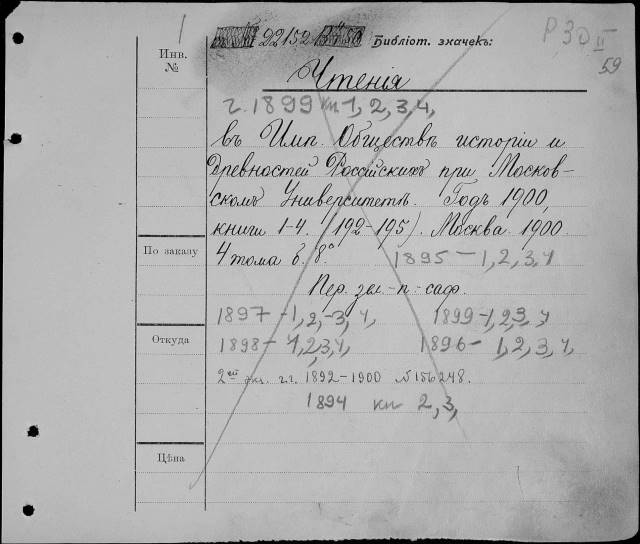 1
22152 Библіот. значекъ:
Р30 II
59
Инв.
№
Чтенія
г. 1899 кн 1, 2, 3, 4,
въ Имп. Обществѣ исторіи и
Древностей Россійскихъ при Москов-
скомъ Университетѣ. Годъ 1900,
книги 1-4. (192-195). Москва. 1900.
По заказу
4 тома б. 8°.
1895 - 1, 2, 3, 4
Пер. зел.-п.-саф.
1897 - 1, 2, 3, 4, 1899 - 1, 2, 3, 4
Откуда
1898 - 1, 2, 3, 4, 1896 - 1, 2, 3, 4,
2ой экз. г.г. 1892-1900 №156248.
1894 кн 2, 3,
Цѣна